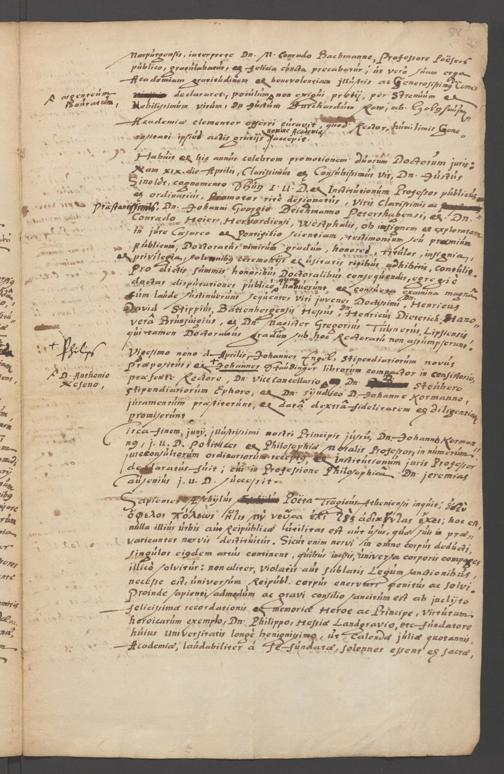 Marpurgensis, interprete Dn. M. Conrado Bachmanno, Professore Poëseos
publico, gratulabatur, et felicia cuncta precabatur, ut verò suum erga
Academiam gratitudinem et benevolentiam illustris ac Generosissimus Comes
declararet, poculum non exigui pretij, per Strenuum
argenteum
Nobilissimum virum, Dn. Justum Burchardum
Academiae clementer offerri curavit, quod Rector, humilimis Gene-
nomine Academiae
rositati ipsius actis gratijs suscepit.
Habuit et hic annus celebrem promotionem duorum Doctorum juris:
Nam XIX. die Aprilis, Clarissimus et Consultissimus Vir, Dn. Justus
Sinolt, cognomento Schüz J. U. D. et Institutionum Professor publicus
et ordinarius, Promotor ritè designatus, Viris Clarissimis ac
Praestantissimis, Dn. Johanni Georgio Deichmanno Petershagensi, et Dn.
Conrado Heier, Hervordiensi, Westphalis, ob insignem et exploratam
in jure Caesareo et Pontificio scientiam, testimonium seu praemium
publicum, Doctoratus nimirum gradum, honores, titulos, insignia,
et privilegia, solennibus ceremonijs et usitatis ritibus, adhibitis, contulit.
Pro dictis summis honoribus Doctoralibus consequendis, egregiè
doctas disputationes publicè habuerunt, et consueta examina magna
cum laude sustinuerunt sequentes Viri juvenes Doctissimi, Henricus
David Stippius, Battenbergensis Hessus, Henricus Dietericus, Hano-
vera Brunsvigius, et Dn. Magister Gregorius Tülnerus, Lipsiensis
qui tamen Doctoralem gradum sub hoc Rectoratu non assumpserunt.
Vigesimo nono d. Aprilis, Johannes Engel, stipendiariorum novus
Praepositus, et Johannes librorum compactor in Consistorio,
praesente Rectore, Dn. Vice Cancellario Dn.
D. Anthonio
Stipendiariorum Ephoro, et Dn. Syndico D. Johanne Kornmanno,
juramentum praestiterunt, et datâ dextrâ fidelitatem et diligentiam
promiserunt.
Circa finem Junij, illustrissimi nostri Principis jussu, Dn. Johannes Korman-
nus, J. U. D. Politices et Philosophiae moralis Professor, in numerum
jureconsultorum ordinariorum receptus et Institutionum juris Professor
declaratus fuit; cui in Professione Philosophica Dn. Jeremias
J. U. D. successit.
Sapienter Aeschylus Poëta Tragicus Atheniensis inquit,
hoc est,
nulla illius urbis aut Reipublicae utilitas est aut usus, quae suis in prae-
varicantes nervis destituitur. Sicut enim nervi in omne corpus deducti,
singulos eiusdem artus continent, quibus incisis, universa corporis compages
illicò solvitur: non aliter, violatis aut sublatis Legum sanctionibus
necesse est, universum Reipubl. corpus enervari penitus ac solvi.
Proinde sapienti admodum ac gravi consilio sancitum est ab inclyto
felicissimae recordationis et memoriae Heroe ac Principe, Virtutum
heroicarum exemplo, Dn. Philippo, Hessiae Landgravio, etc. fundatore
huius Universitatis longè benignissimo, ut Calendis Julijs quotannis
Academiae, laudabiliter à se fundatae, solennes essent et sacrae,